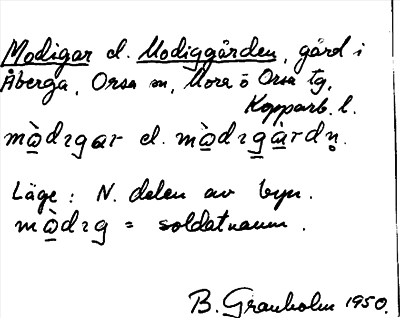 Modigar el. Modiggården, gård i
Åberga, Orsa sn, Mora o Orsa tg,
Kopparb. l.
mò̲dıgar el. mò̲dıg̲à̲rdn̥.
Läge: N. delen av byn.
mò̲dıg = soldatnamn.
B. Granholm 1950.